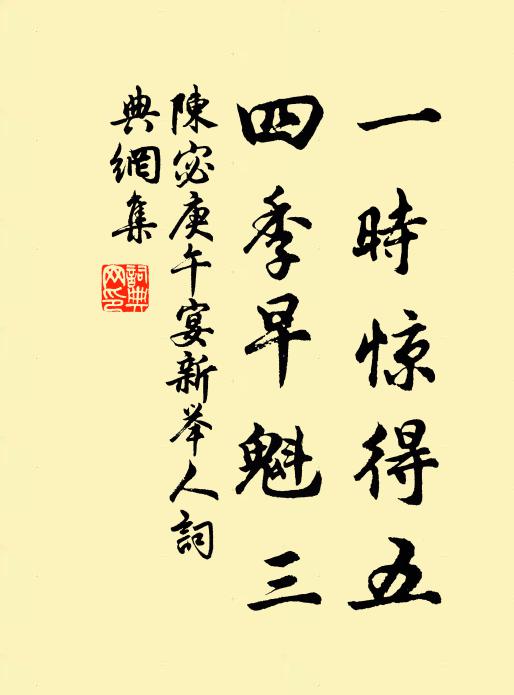 一時惊得五
四季早魁三
陳宓庚午宴新举人詞
典網集
詞典網印